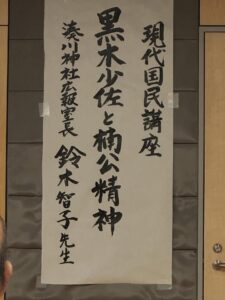 現代国民講座
黒木少佐と楠公精神
湊川神社広報室長 鈴木智子先生